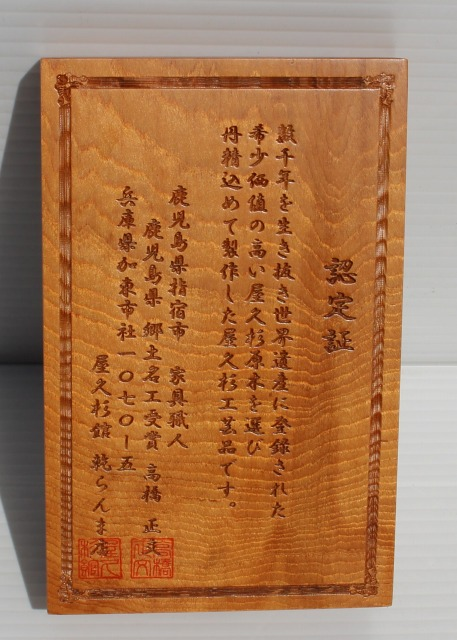 認定証
数千年を生き抜き世界遺産に登録された
希少価値の高い屋久杉原木を選び
丹精込めて製作した屋久杉工芸品です。
鹿児島県指宿市 家具職人
鹿児島県 郷土名工受賞 高橋 正文
兵庫県加東市社一〇七〇ー五
屋久杉館 乾らんま店